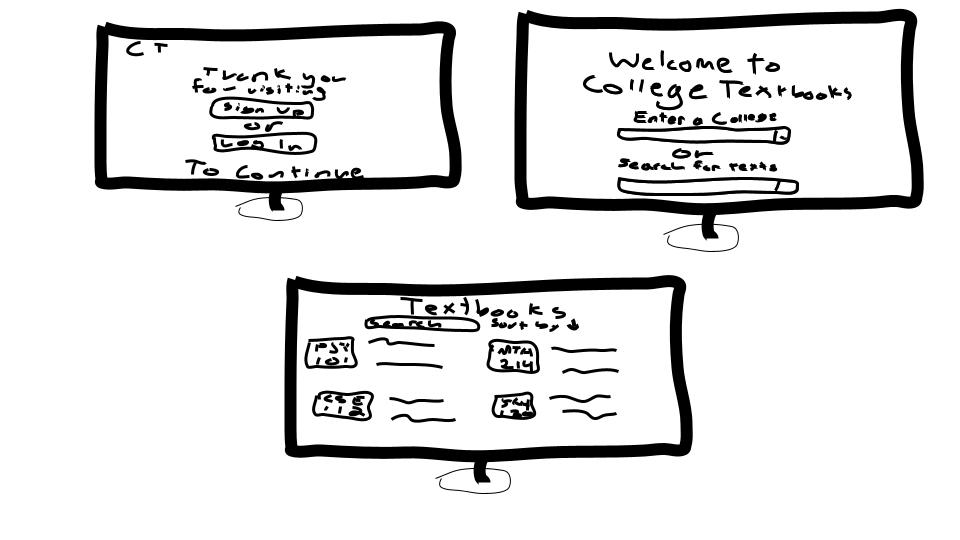 CT
Thank you
for visiting
Sign up
or
Log In
To Continue
Welcome to
College Textbooks
Enter a College
or
Search for texts
Textbooks
Search Sort by
PSY
101
MTH
214
CSE
112